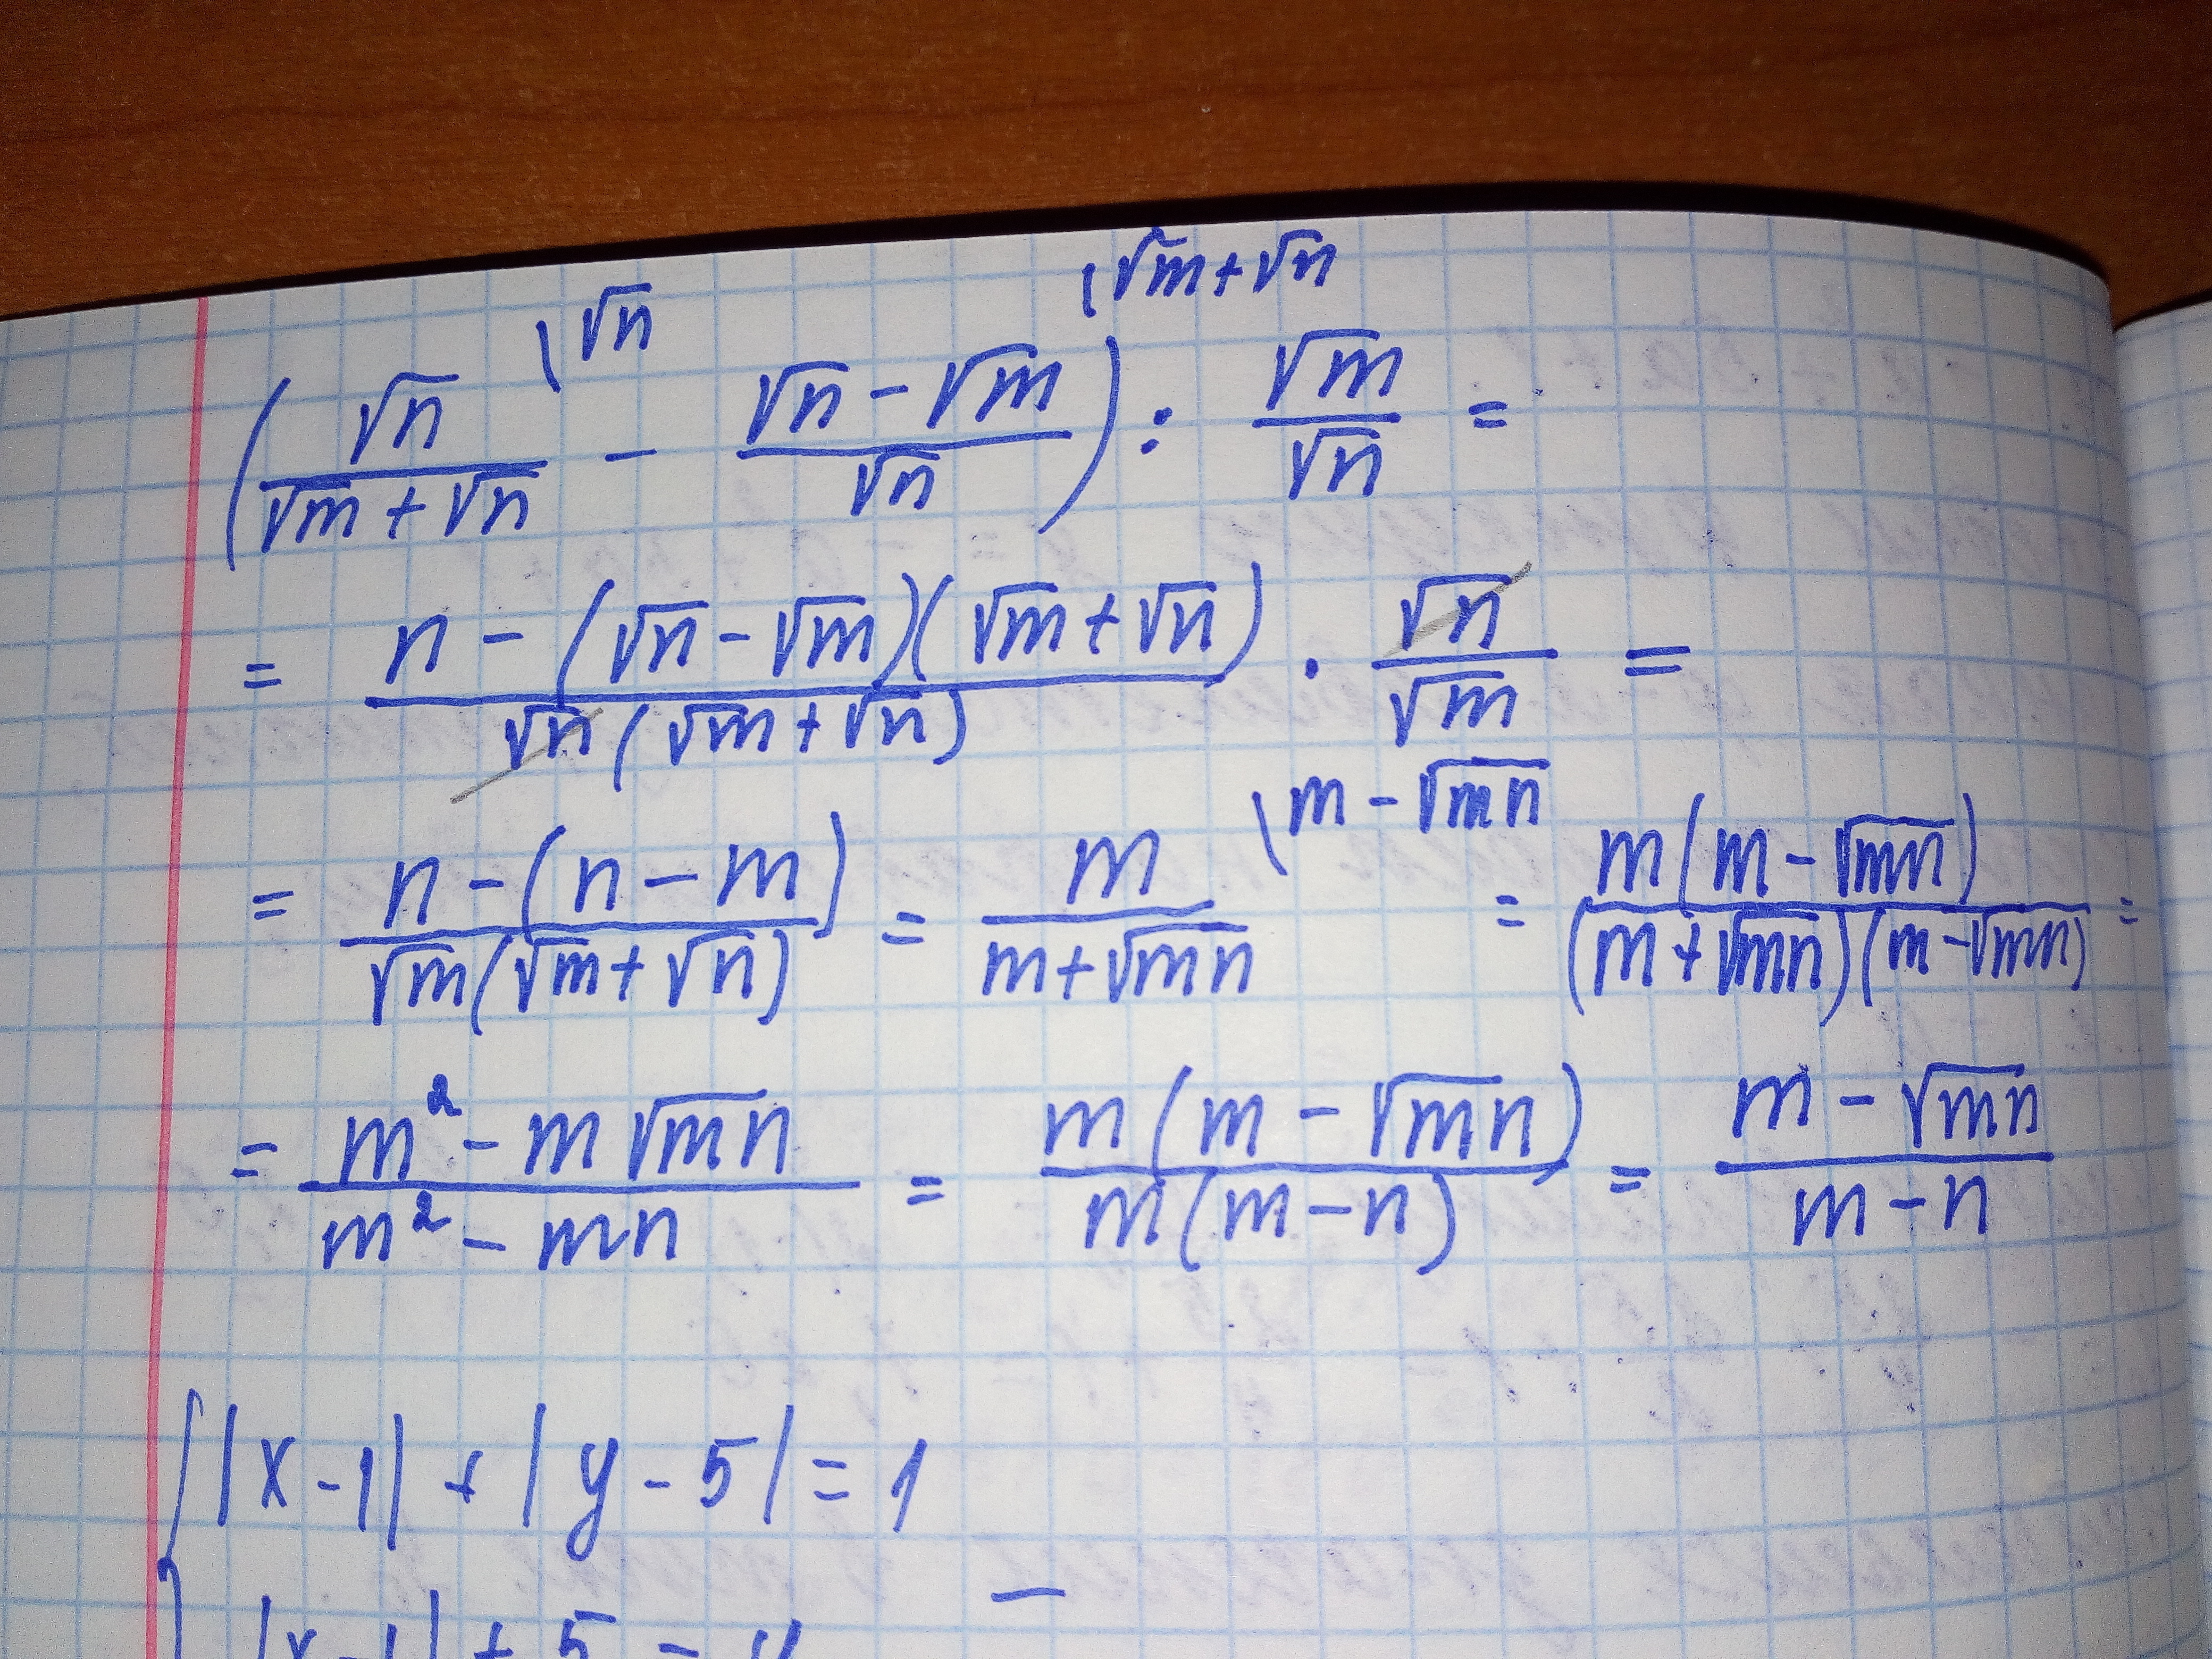 (√n/(√m+√n) \√n - (√n-√m)/√n \√m+√n) : √m/√n =
= (n-(√n-√m)(√m+√n))/(√n(√m+√n)) · √n/√m =
= (n-(n-m))/(√m(√m+√n)) = m/(m+√mn) \m-√mn = m(m-√mn)/((m+√mn)(m-√mn)) =
= (m²-m√mn)/(m²-mn) = m(m-√mn)/(m(m-n)) = (m-√mn)/(m-n)
{|x-1|+|y-5|=1
|x-1|+5=y